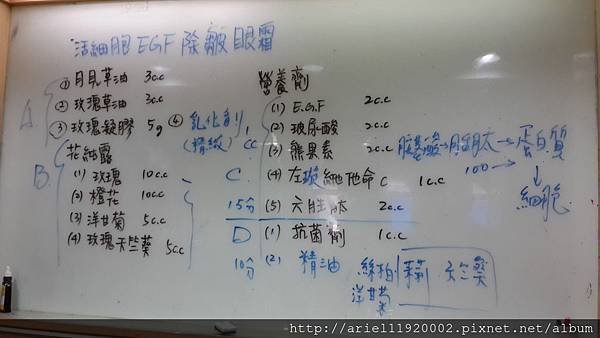 活細胞 EGF 除皺眼霜
A.
① 月見草油 3c.c
② 玫瑰草油 3c.c
③ 玫瑰凝膠 5g
④ 乳化劑 1cc
(橫紋)
B.
花細露
(1) 玫瑰 10c.c
(2) 橙花 10c.c
(3) 洋甘菊 5c.c
(4) 玫瑰天竺葵 5c.c
營養劑
(1) E.G.F 2c.c
(2) 玻尿酸 2c.c
(3) 熊果素 2c.c
C.
(4) 左璇維他命C 1c.c
15分
(5) 六胜肽 2c.c
胺基酸→月生月太→蛋白質
100→
↓
細胞
D
(1) 抗菌劑 1c.c
10分
(2) 精油
絲柏
洋甘菊
天竺葵
http://ariel11920002.pixnet.net/album